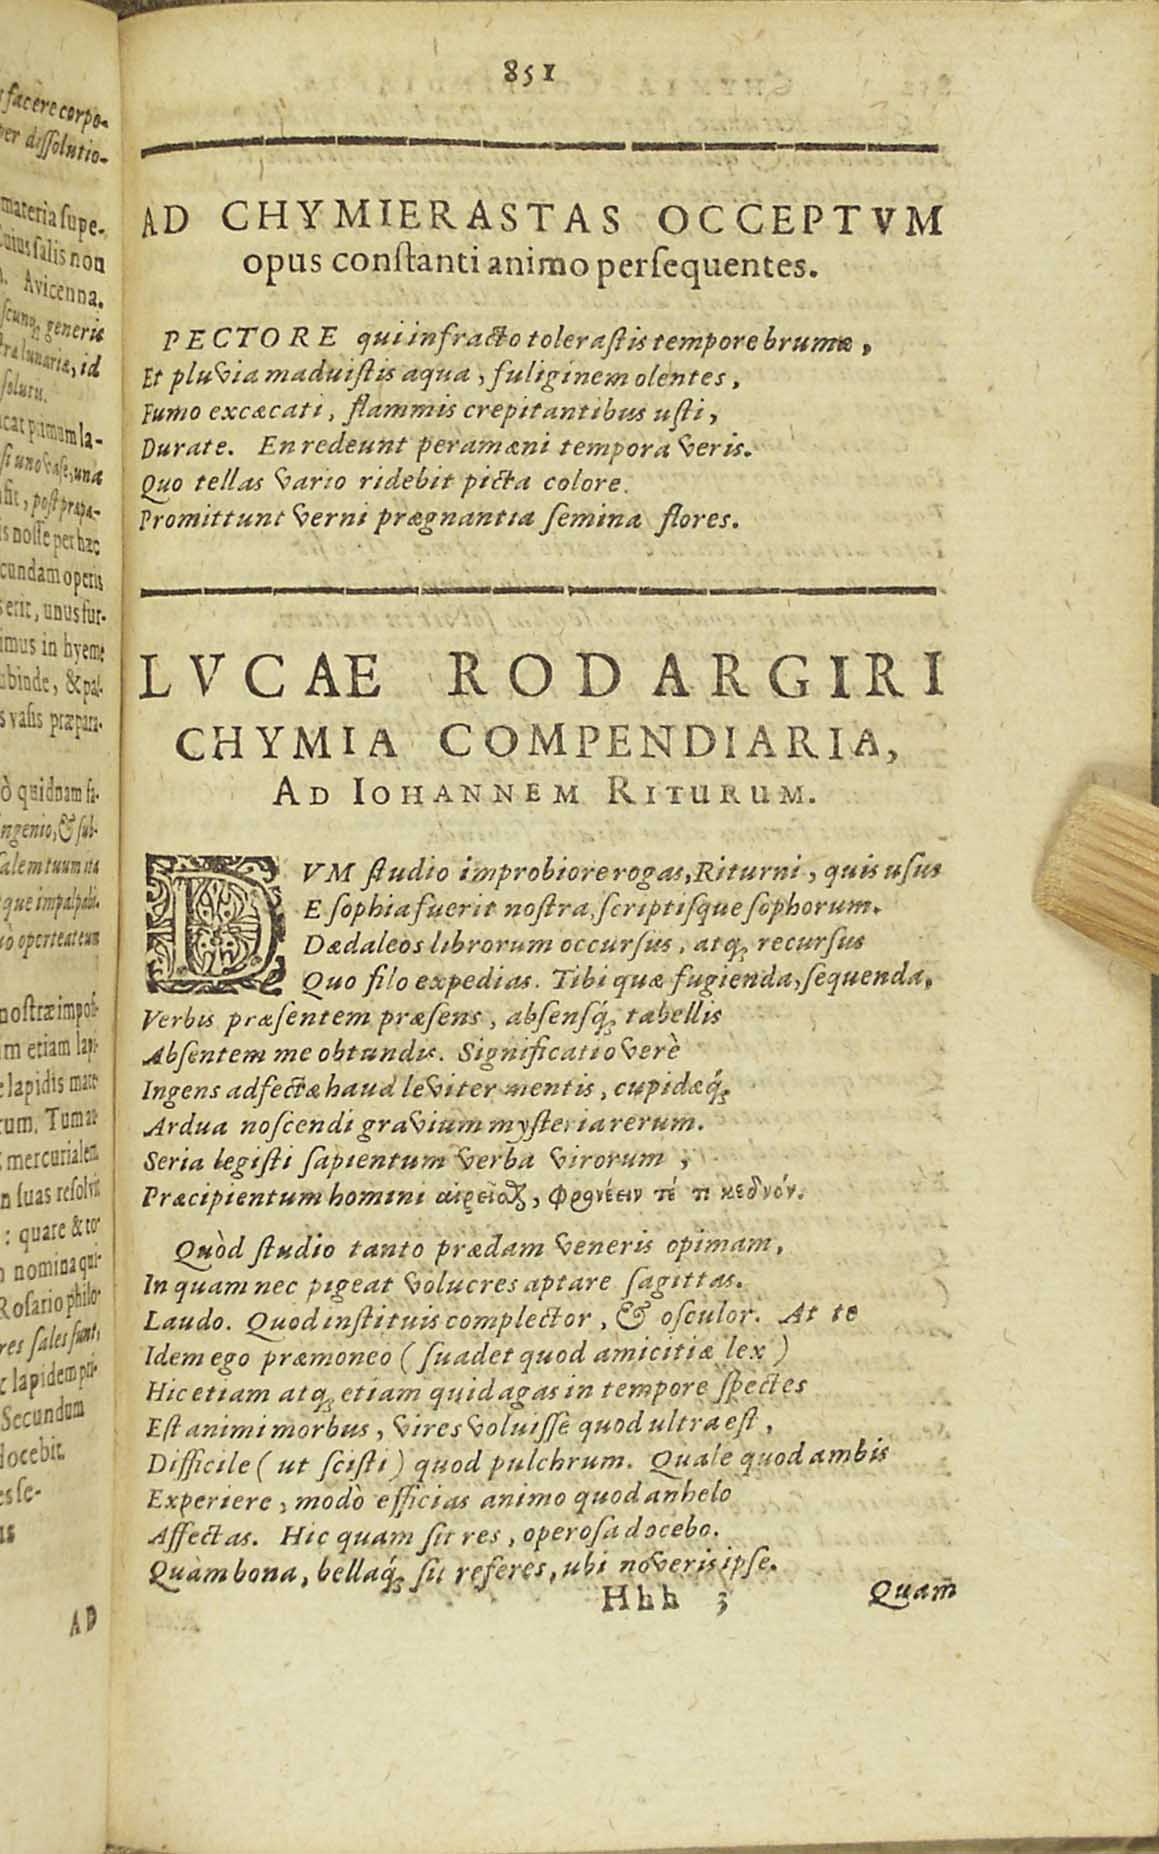 851
AD CHYMIERASTAS OCCEPTVM
opus conſtanti animo perſequentes.
PECTORE qui infracto toleraſtis tempore brumæ,
Et pluvia maduiſtis aqua, fuliginem olentes,
Fumo excæcati, flammis crepitantibus uſti,
Durate. En redeunt peramæni tempora veris.
Quo tellas vario ridebit picta colore.
Promittunt verni prægnantia ſemina flores.
LVCAE RODARGIRI
CHYMIA COMPENDIARIA,
AD IOHANNEM RITURUM.
DVM ſtudio improbiore rogas, Riturni, quis uſus
E ſophia fuerit noſtra, ſcriptiſque ſophorum.
Dædaleos librorum occurſus, atq; recurſus
Quo filo expedias. Tibi quæ fugienda, ſequenda,
Verbis præſentem præſens, abſensq́; tabellis
Abſentem me obtundis. Significatio verè
Ingens adfectæ haud leviter mentis, cupidæq́;
Ardua noſcendi gravium myſteria rerum.
Seria legiſti ſapientum verba virorum,
Præcipientum homini αἱρεῖσθς, φρονέειν τέ τι κεδνόν.
Quòd ſtudio tanto prædam veneris opimam,
In quam nec pigeat volucres aptare ſagittas.
Laudo. Quod inſtituis complector, & oſculor. At te
Idem ego præmoneo (ſuadet quod amicitiæ lex)
Hic etiam atq; etiam quid agas in tempore ſpectes
Eſt animi morbus, vires voluiſſe quod ultra eſt,
Difficile (ut ſciſti) quod pulchrum. Quale quod ambis
Experiere, modò efficias animo quod anhelo
Affectas. Hic quam ſit res, operoſa docebo.
Quàm bona, bellaq́; ſit referes, ubi noveris ipſe.
Hhh 3 Quam
facere corpo-
per diſſolutio-
materia ſupe-
cuius ſalis non
Avicenna.
generis
lunariæ, id
primum la-
ſi uno vaſe, una
poſt præpa-
noſſe per hæc
ſecundam operis
erit, unus fur-
in hyeme
ubinde, & pal-
vaſis præpara-
quidnam ſi-
ingenio, & ſub-
ſalem tuum ita
que impalpabi-
oporteat eum
noſtræ impoſ-
etiam lapi-
lapidis mate-
Tum ar-
mercurialem
ſuas reſolvit
: quare & to-
nomina qui-
Roſario philo-
ſales ſunt,
lapidem pri-
Secundum
docebit.
AD